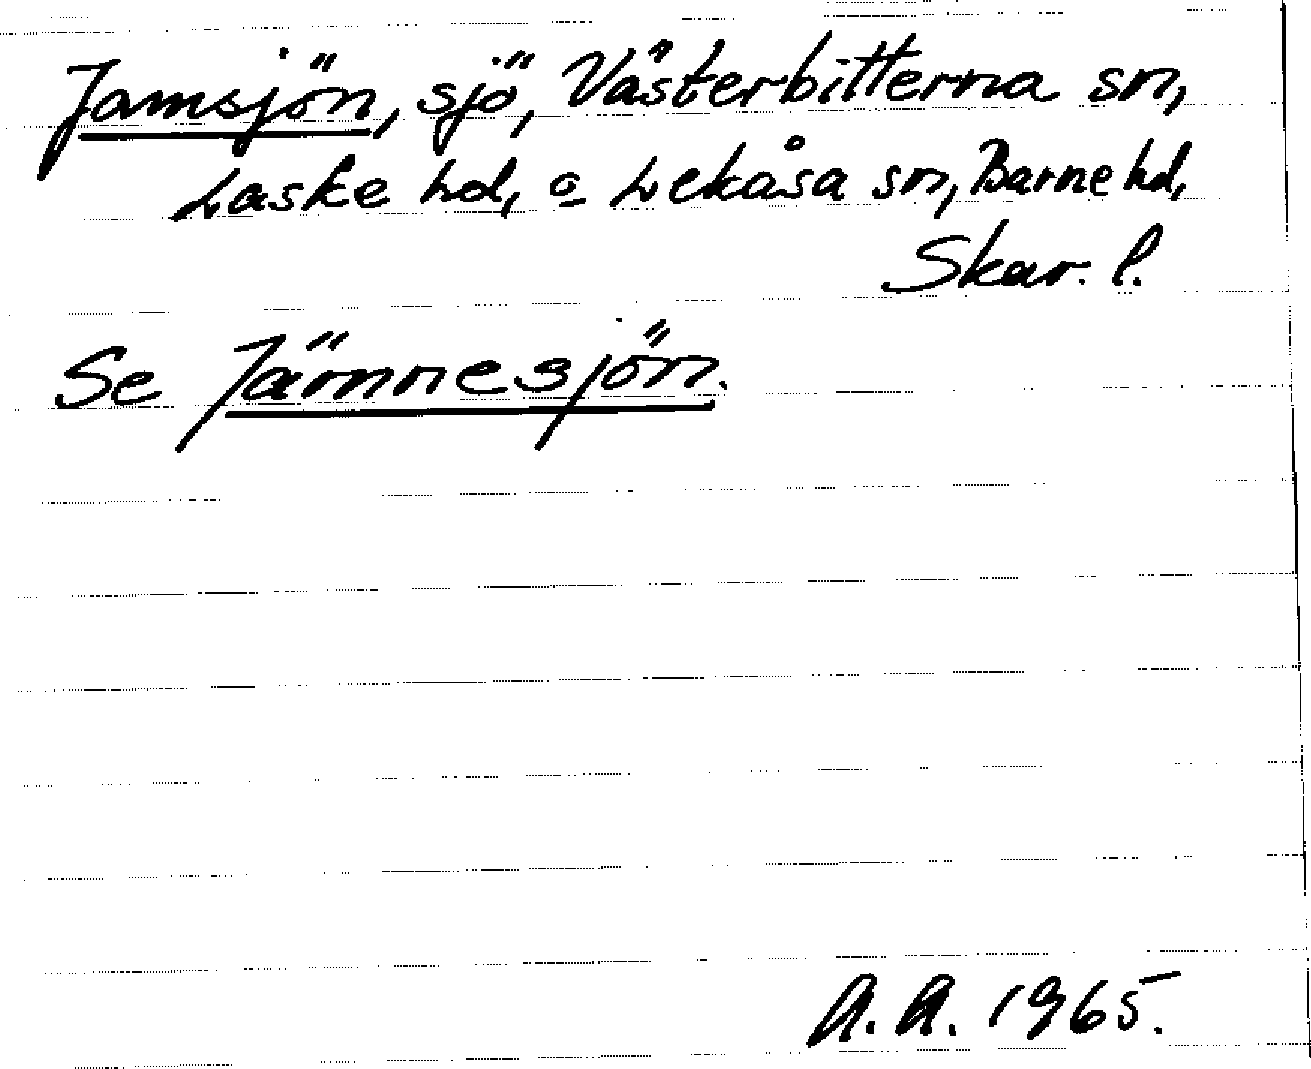 Jamsjön, sjö, Västerbitterna sn,
Laske hd, o Lekåsa sn, Barne hd,
Skar. l.
Se Jämnesjön.
A.A. 1965.